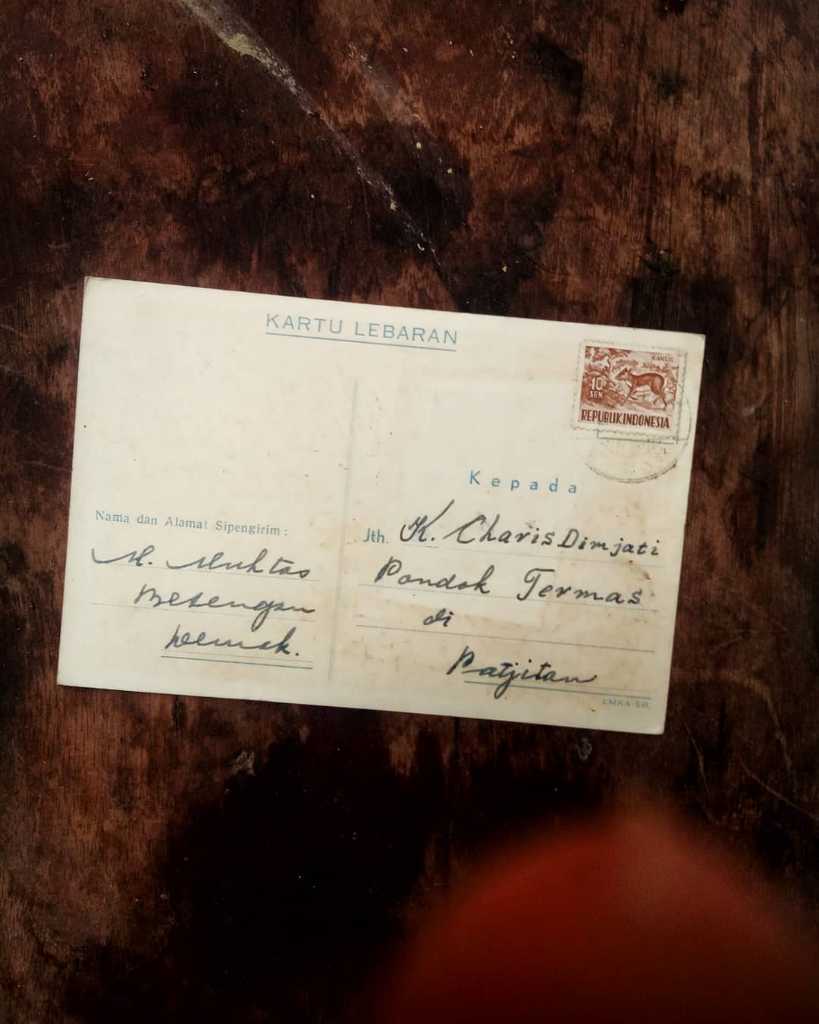 KARTU LEBARAN
KANTJIL
10
SEN
REPUBLIK INDONESIA
Kepada
Nama dan Alamat Sipengirim :
M. Muhtar
Betengan
Demak.
Jth. K. Charis Dimjati
Pondok Termas
di
Patjitan